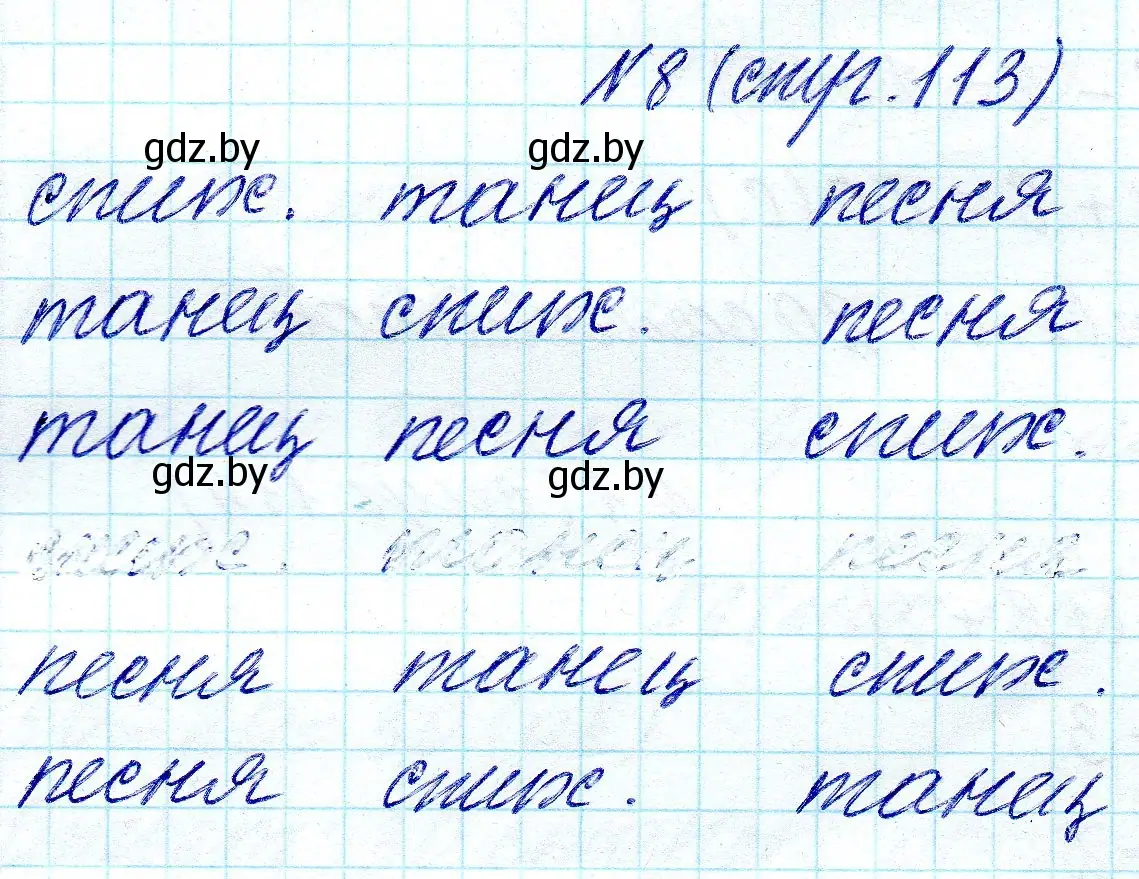 N 8 (стр. 113)
gdz.by gdz.by
стих. танец песня
танец стих. песня
танец песня стих.
gdz.by gdz.by
песня танец стих.
песня стих. танец